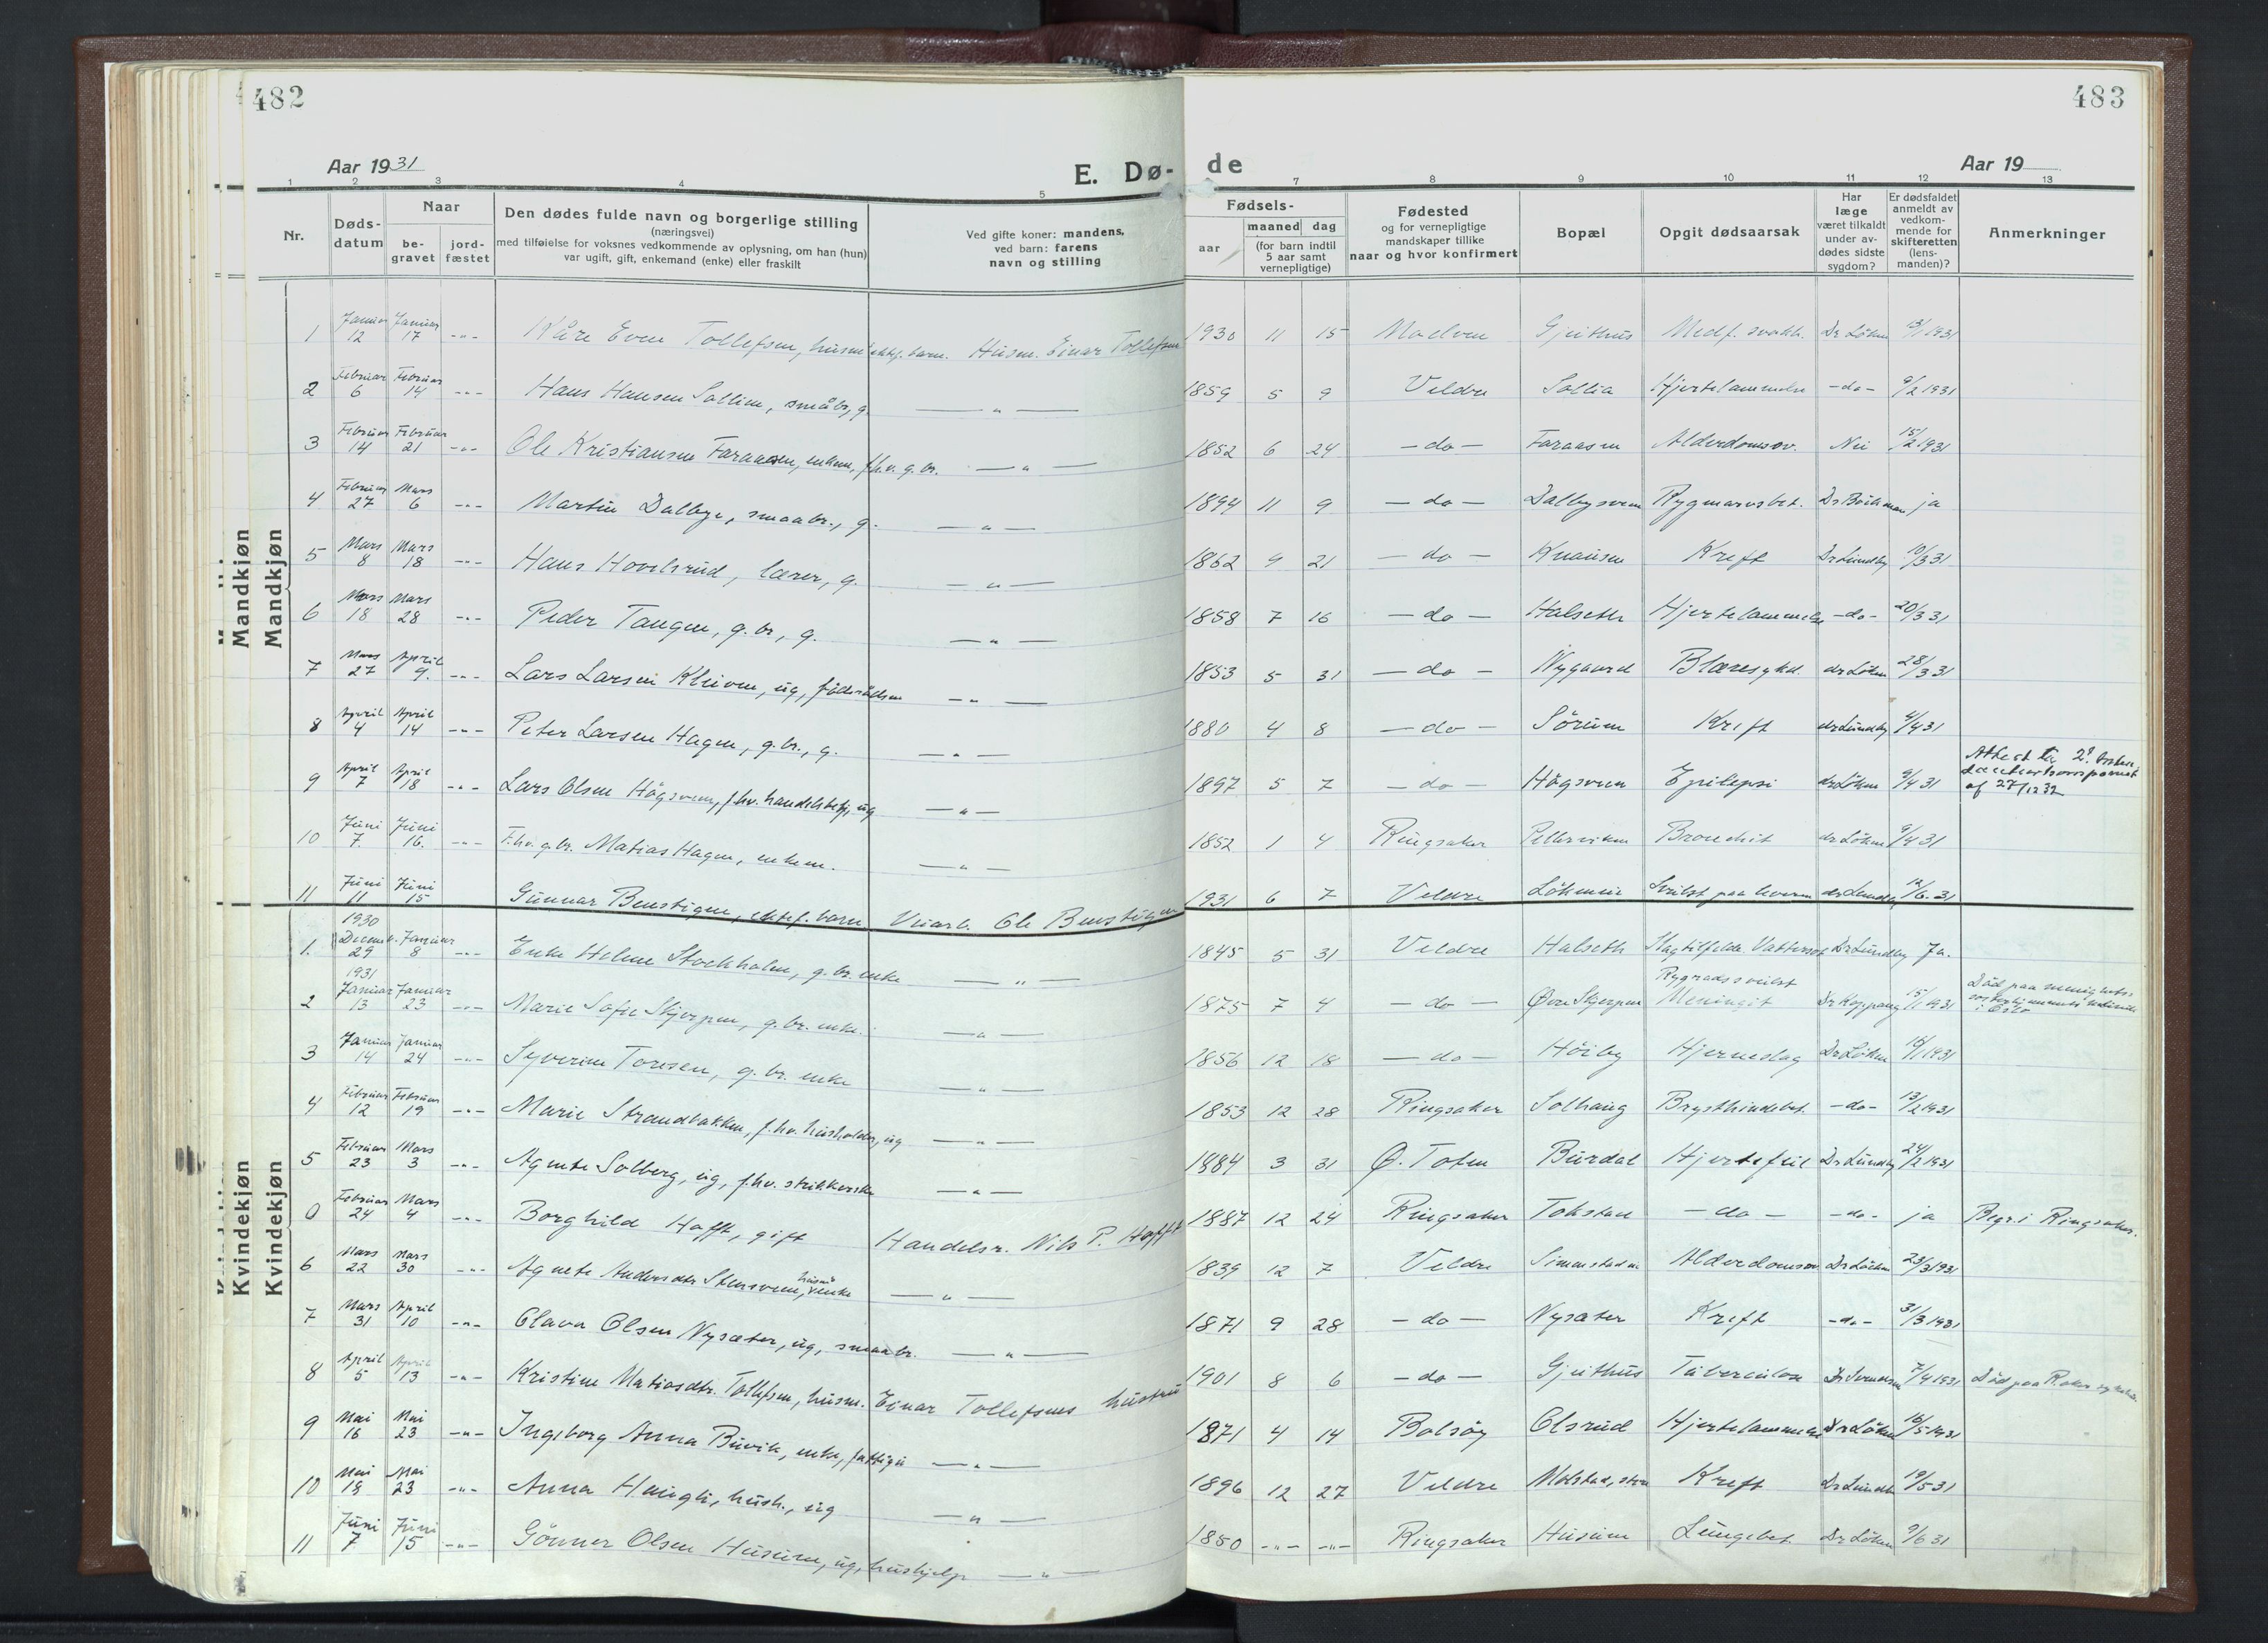 482
483
Aar 1931
E. Dø-
de
Aar 19
1 2 3 4 5 7 8 9 10 11 12 13
Nr.
Døds-
datum
Naar
be-
gravet
jord-
fæstet
Den dødes fulde navn og borgerlige stilling
(næringsvei)
med tilføielse for voksnes vedkommende av oplysning, om han (hun)
var ugift, gift, enkemand (enke) eller fraskilt
Ved gifte koner: mandens,
ved barn: farens
navn og stilling
Fødsels-
aar
maaned dag
(for barn indtil
5 aar samt
vernepligtige)
Fødested
og for vernepligtige
mandskaper tillike
naar og hvor konfirmert
Bopæl
Opgit dødsaarsak
Har
læge
været tilkaldt
under av-
dødes sidste
sygdom?
Er dødsfaldet
anmeldt av
vedkom-
mende for
skifteretten
(lens-
manden)?
Anmerkninger
Mandkjøn
Mandkjøn
1 Januar 12 Januar 17 -"- Kåre Even Tollefsen, husm. ektef. barn. Husm. Einar Tollefsen 1930 11 15 Maelven Gjeithus Medf. svakh. Dr Löken 13/1 1931
2 Februar 6 Februar 14 -"- Hans Hansen Sollien, småbr, g. — " — 1859 5 9 Veldre Sollia Hjertelammelse -do- 9/2 1931
3 Februar 14 Februar 21 -"- Ole Kristiansen Faraasen, enkem, f.hv. g.br. — " — 1852 6 24 — do — Faraasen Alderdomssv. Nei 15/2 1931
4 Februar 27 Mars 6 -"- Martin Dalbye, smaabr., g. — " — 1894 11 9 — do — Dalbysveen Rygmarvsbet. Dr Böckman ja
5 Mars 8 Mars 18 -"- Hans Hovelsrud, lærer, g. — " — 1862 9 21 — do — Knausen Kreft Dr Lundby 10/3 31
6 Mars 18 Mars 28 -"- Peder Tangen, g.br, g. — " — 1858 7 16 — do — Halseth Hjertelammelse -do- 20/3 31
7 Mars 27 April 9. -"- Lars Larsen Kleiven, ug, föderådsm — " — 1853 5 31 — do — Nygaard Blæresykd. dr Löken 28/3 31
8 April 4 April 14 -"- Peter Larsen Hagen, g.br., g. — " — 1880 4 8 — do — Sörum Kreft dr Lundby 4/4 31
9 April 7 April 18 -"- Lars Olsen Högsveen, f.hv. handelsbetj, ug — " — 1897 5 7 — do — Högsveen Epilepsi dr Löken 9/4 31 Attest til af 27/12 32
10 Juni 7. Juni 16. -"- F.hv. g.br. Matias Hagen, enkem. — " — 1852 1 4 Ringsaker Pellerviken Bronchit dr Löken 9/4 31
11 Juni 11 Juni 15 Gunnar Benstigen, ektef. barn Veiarb. Ole Benstigen 1931 6 7 Veldre Lökenseie Svulst paa leveren dr Lundby 12/6. 31
Kvindekjøn
Kvindekjøn
1. 1930 Decemb. 29 Januar 8 -"- Enke Helene Stockholm, g.br. enke — " — 1845 5 31 Veldre Halseth Slagtilfelde. Vattersot Dr Lundby Ja.
2 1931 Januar 13 Januar 23 -"- Marie Sofie Skjerpen, g.br. enke. — " — 1875 7 4 — do — Øvre Skjerpen Rygradssvulst Meningit Dr Koppang 15/1 1931 Död paa menighets- i Oslo
3 Januar 14 Januar 24 -"- Syverine Toresen, g.br. enke — " — 1856 12 18 — do — Höiby Hjerneslag Dr Löken 16/1 1931
4 Februar 12 Februar 19 -"- Marie Strandbakken, f.hv. husholder, ug — " — 1853 12 28 Ringsaker Solhaug Brysthindebet. -do- 13/2 1931
5 Februar 23 Mars 3 -"- Agnete Solberg, ug, f.hv. strikkerske — " — 1884 3 31 Ø. Toten Burdal Hjertefeil Dr Lundby 24/2 1931
0 Februar 24 Mars 4 -"- Borghild Hafft, gift Handelsr. Nils P. Hafft 1887 12 24 Ringsaker Tokstad — do — -do- ja Begr. i Ringsaker.
6 Mars 22 Mars 30 -"- Agnete Andersdtr Stensveen, husm. enke — " — 1839 12 7 Veldre Simenstad Alderdomssv Dr Löken 23/3 1931
7 Mars 31 April 10 -"- Olava Olsen Nysæter, ug, smaabr. — " — 1871 9 28 — do — Nysæter Kreft -do- 31/3 1931
8 April 5 April 13 -"- Kristine Matiasdtr. Tollefsen, husm. Einar Tollefsens hustru 1901 8 6 — do — Gjeithus Tuberculose Dr Svendsen 7/4 1931 Död paa R.aker sykehus
9 Mai 16 Mai 23 -"- Ingeborg Anna Buvik, enke, fattigu — " — 1871 4 14 Bolsöy Olsrud Hjertelammelse Dr Löken 16/5 1931
10 Mai 18 Mai 23 -"- Anna Haugli, hush., ug — " — 1896 12 27 Veldre Molstad, store Kreft Dr Lundb 19/5 31
11 Juni 7 Juni 15 -"- Gönner Olsen Husum, ug, hushjelp — " — 1850 -"- -"- Ringsaker Husum Lungebet. Dr Löken 9/6 31